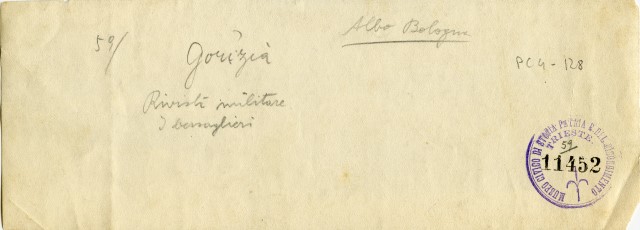 Albo Bologna
59/
Gorizia
PC4-128
Rivista militare
I Bersaglieri
MUSEO CIVICO DI STORIA PATRIA E DEL RISORGIMENTO
TRIESTE
59
11452